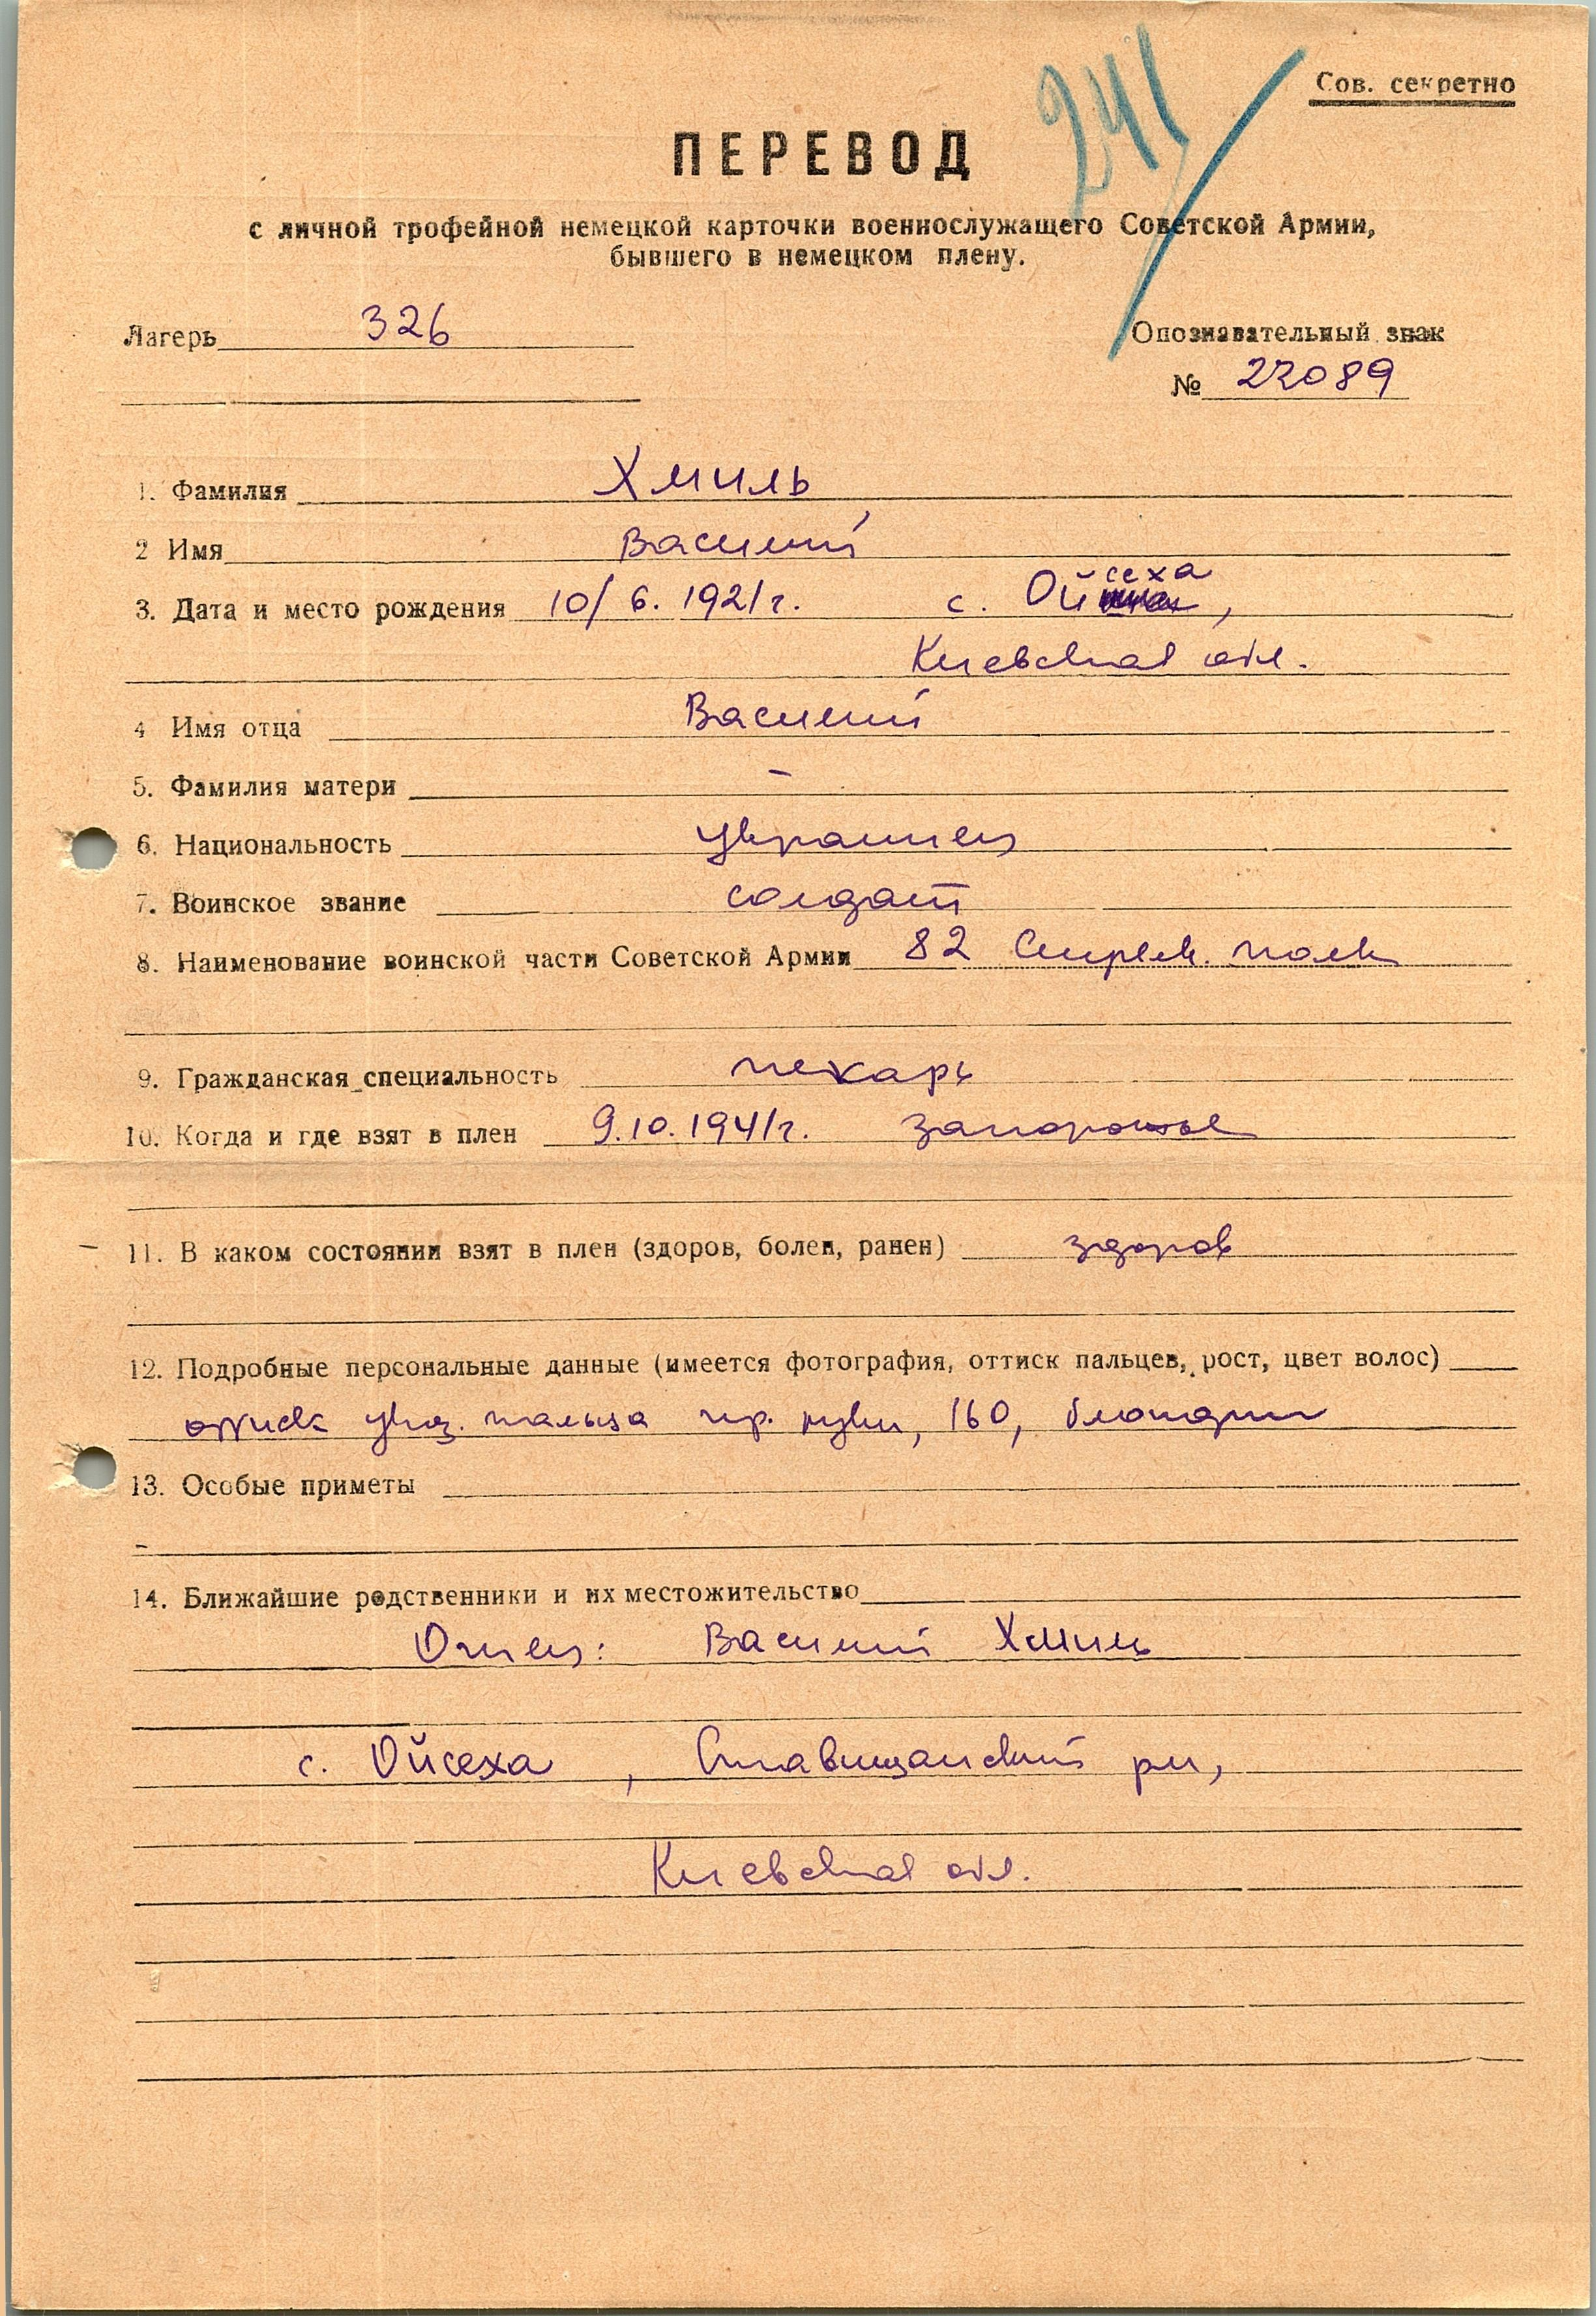 241
Сов. секретно
ПЕРЕВОД
с личной трофейной немецкой карточки военнослужащего Советской Армии,
бывшего в немецком плену.
Лагерь 326
Опознавательный знак
№ 22089
1. Фамилия Хмиль
2 Имя Василий
3. Дата и место рождения 10/6. 1921 г. с. Ойсеха,
Киевская обл.
4 Имя отца Василий
5. Фамилия матери –
6. Национальность украинец
7. Воинское звание солдат
8. Наименование воинской части Советской Армии 82 стрелк. полк
9. Гражданская специальность пекарь
10. Когда и где взят в плен 9.10.1941 г. Запорожье
11. В каком состоянии взят в плен (здоров, болен, ранен) здоров
12. Подробные персональные данные (имеется фотография, оттиск пальцев, рост, цвет волос)
оттиск указ. пальца пр. руки, 160, блондин
13. Особые приметы
–
14. Ближайшие родственники и их местожительство
Отец: Василий Хмиль
с. Ойсеха, Ставищанский рн,
Киевская обл.